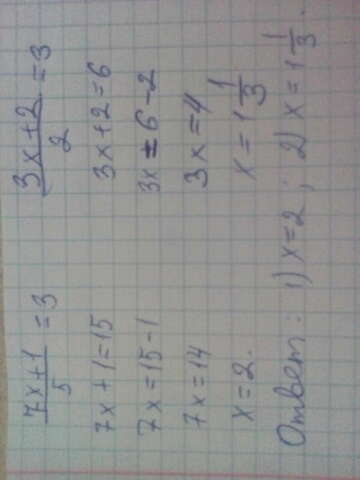 7x+1/5 =3
7x+1=15
7x=15-1
7x=14
x=2.
3x+2/2 =3
3x+2=6
3x=6-2
3x=4
x=1 1/3
Ответ: 1) x=2; 2) x=1 1/3.